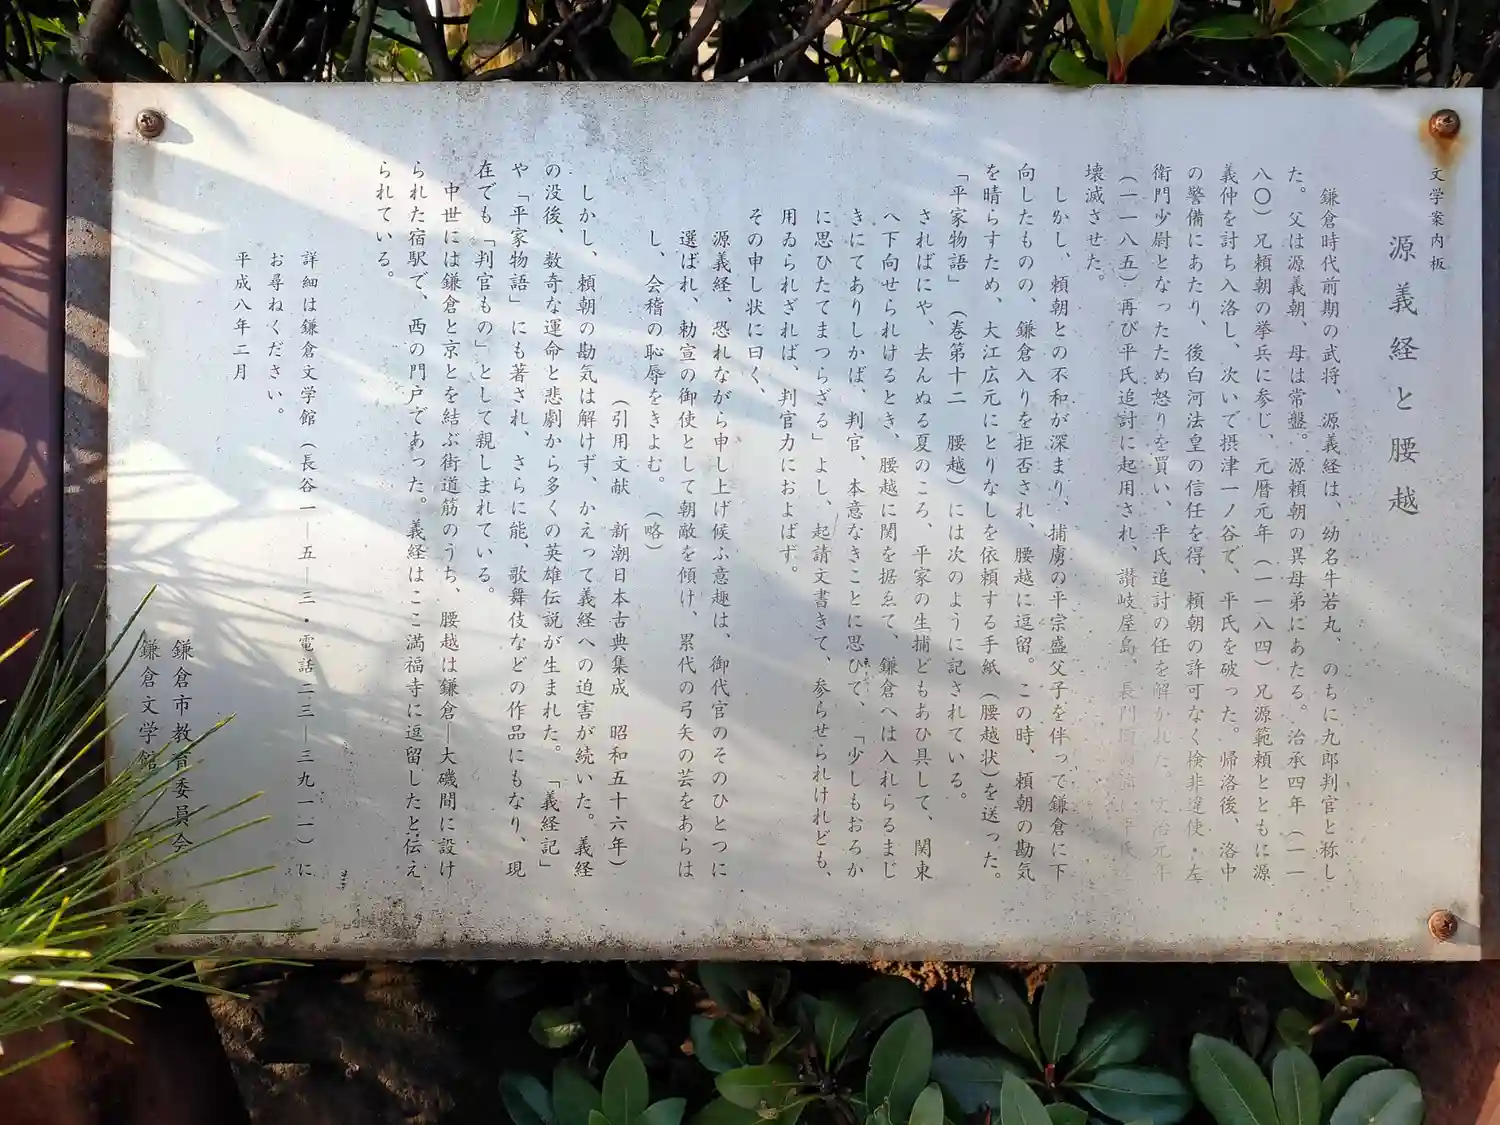 文学案内板
源義経と腰越
鎌倉時代前期の武将、源義経は、幼名牛若丸、のちに九郎判官と称し
た。父は源義朝、母は常盤。源頼朝の異母弟にあたる。治承四年（一一
八〇）兄頼朝の挙兵に参じ、元暦元年（一一八四）兄源範頼とともに源
義仲を討ち入洛し、次いで摂津一ノ谷で、平氏を破った。帰洛後、洛中
の警備にあたり、後白河法皇の信任を得、頼朝の許可なく検非違使・左
衛門少尉となったため怒りを買い、平氏追討の任を解かれた。文治元年
（一一八五）再び平氏追討に起用され、讃岐屋島、長門
壊滅させた。
しかし、頼朝との不和が深まり、捕虜の平宗盛父子を伴って鎌倉に下
向したものの、鎌倉入りを拒否され、腰越に逗留。この時、頼朝の勘気
を晴らすため、大江広元にとりなしを依頼する手紙（腰越状）を送った。
「平家物語」（巻第十二　腰越）には次のように記されている。
さればにや、去んぬる夏のころ、平家の生捕どもあひ具して、関東
へ下向せられけるとき、腰越に関を据ゑて、鎌倉へは入れらるまじ
きにてありしかば、判官、本意なきことに思ひて、「少しもおろか
に思ひたてまつらざる」よし、起請文書きて、参らせられけれども、
用ゐられざれば、判官力におよばず。
その申し状に曰く、
源義経、恐れながら申し上げ候ふ意趣は、御代官のそのひとつに
選ばれ、勅宣の御使として朝敵を傾け、累代の弓矢の芸をあらは
し、会稽の恥辱をきよむ。（略）
（引用文献　新潮日本古典集成　昭和五十六年）
しかし、頼朝の勘気は解けず、かえって義経への迫害が続いた。義経
の没後、数奇な運命と悲劇から多くの英雄伝説が生まれた。「義経記」
や「平家物語」にも著され、さらに能、歌舞伎などの作品にもなり、現
在でも「判官もの」として親しまれている。
中世には鎌倉と京とを結ぶ街道筋のうち、腰越は鎌倉―大磯間に設け
られた宿駅で、西の門戸であった。義経はここ満福寺に逗留したと伝え
られている。
詳細は鎌倉文学館（長谷一―五―三・電話二三―三九一一）に
お尋ねください。
平成八年二月
鎌倉市教育委員会
鎌倉文学館